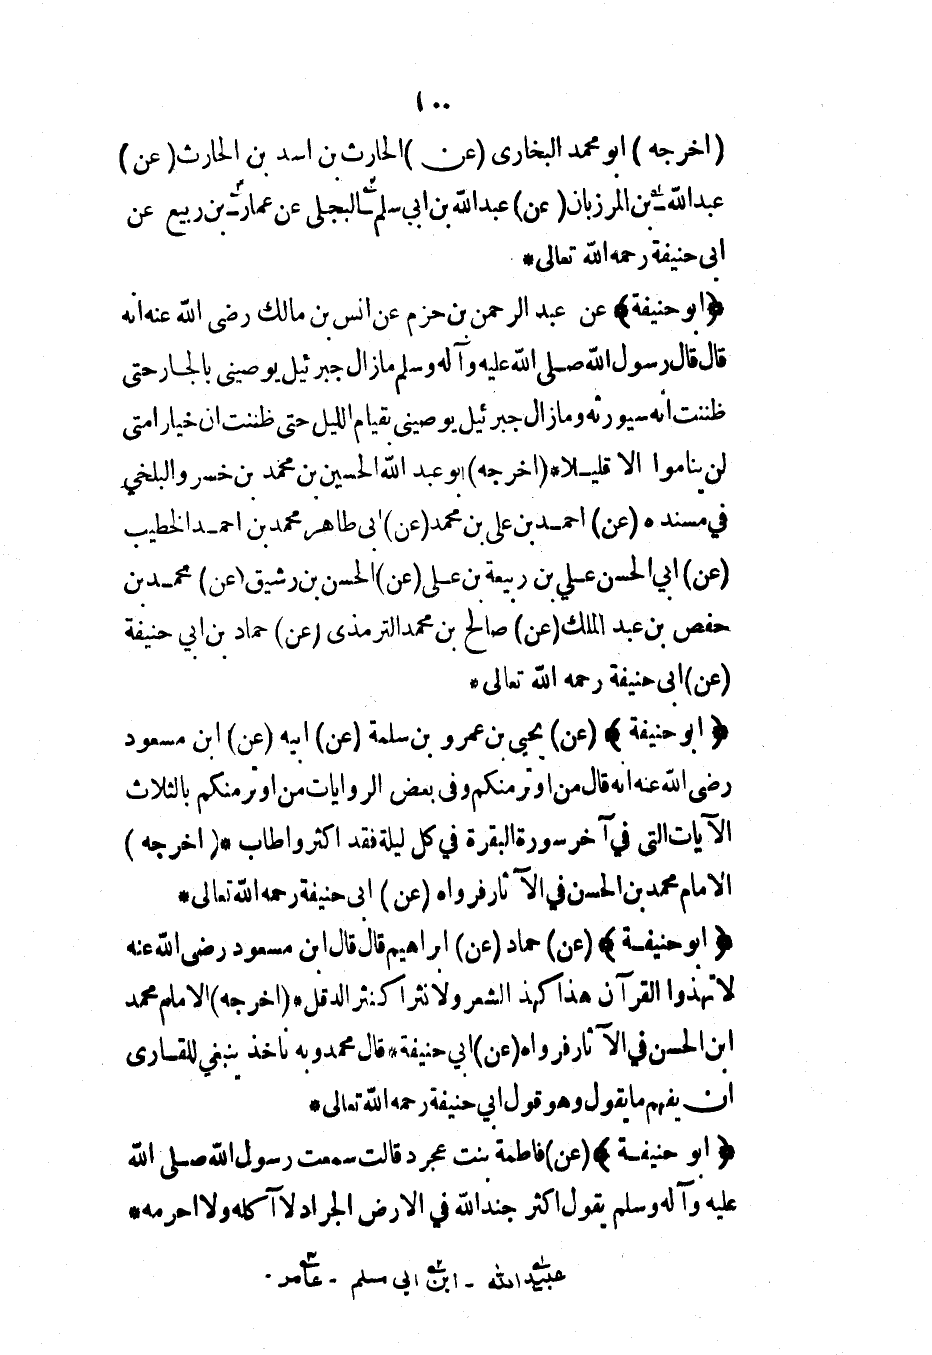 ١٠٠
(اخرجه) ابو محمد البخارى (عن) الحارث بن اسد بن الحارث (عن)
عبدالله بن المرزبان (عن) عبدالله بن ابي سلم البجلى عن عمار بن ربيع عن
ابى حنيفة رحمه الله تعالى*
﴿ابو حنيفة﴾ عن عبد الرحمن بن حزم عن انس بن مالك رضى الله عنه انه
قال قال رسول الله صلى الله عليه وآله وسلم مازال جبرئيل يوصينى بالجار حتى
ظننت انه سيورثه ومازال جبرئيل يوصينى بقيام الليل حتى ظننت ان خيار امتى
لن يناموا الا قليلا*(اخرجه) ابو عبد الله الحسين بن محمد بن خسرو البلخي
في مسنده (عن) احمد بن على بن محمد (عن) ابى طاهر محمد بن احمد الخطيب
(عن) ابي الحسن علي بن ربيعة بن على (عن) الحسن بن رشيق (عن) محمد بن
حفص بن عبد الملك (عن) صالح بن محمد الترمذى (عن) حماد بن ابي حنيفة
(عن) ابى حنيفة رحمه الله تعالى*
﴿ابو حنيفة﴾ (عن) يحيى بن عمرو بن سلمة (عن) ابيه (عن) ابن مسعود
رضى الله عنه انه قال من اوتر منكم وفى بعض الروايات من اوتر منكم بالثلاث
الآيات التى في آخر سورة البقرة في كل ليلة فقد اكثر واطاب *(اخرجه)
الامام محمد بن الحسن في الآثار فرواه (عن) ابى حنيفة رحمه الله تعالى*
﴿ابو حنيفة﴾ (عن) حماد (عن) ابراهيم قال قال ابن مسعود رضى الله عنه
لا تهذوا القرآن هذا كهذ الشعر ولا نثرا كنثر الدقل*(اخرجه) الامام محمد
ابن الحسن في الآثار فرواه (عن) ابي حنيفة*قال محمد وبه نأخذ ينبغي للقارى
ان يفهم ما يقول وهو قول ابي حنيفة رحمه الله تعالى*
﴿ابو حنيفة﴾ (عن) فاطمة بنت عجرد قالت سمعت رسول الله صلى الله
عليه وآله وسلم يقول اكثر جند الله في الارض الجراد لا آكله ولا احرمه*
١ عبيد الله - ٢ ابن ابى مسلم - ٣ عامر .